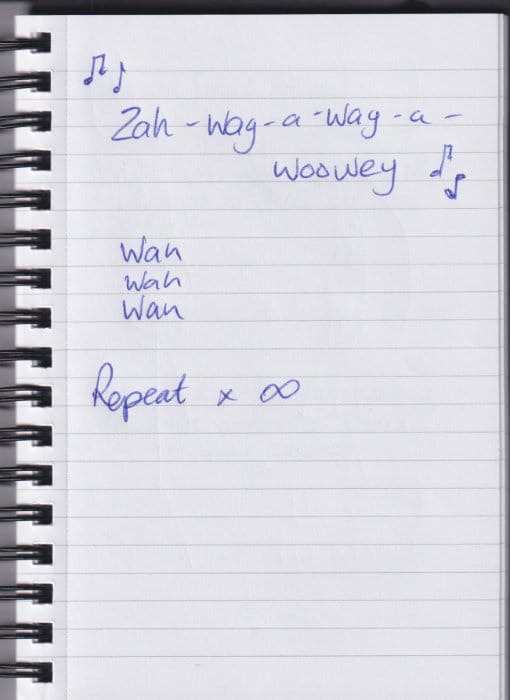 ♫ ♪
Zah-wag-a-wag-a-
woowey ♫ ♪
Wah
wah
Wah
Repeat x ∞